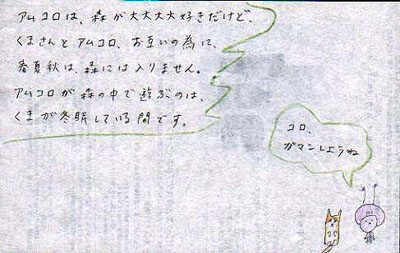 アムコロは、森が大大大大好きだけど、
くまさんとアムコロ、お互いの為に、
春夏秋は、森には入りません。
アムコロが森の中で遊ぶのは、
くまが冬眠している間です。
コロ、
ガマンしようね